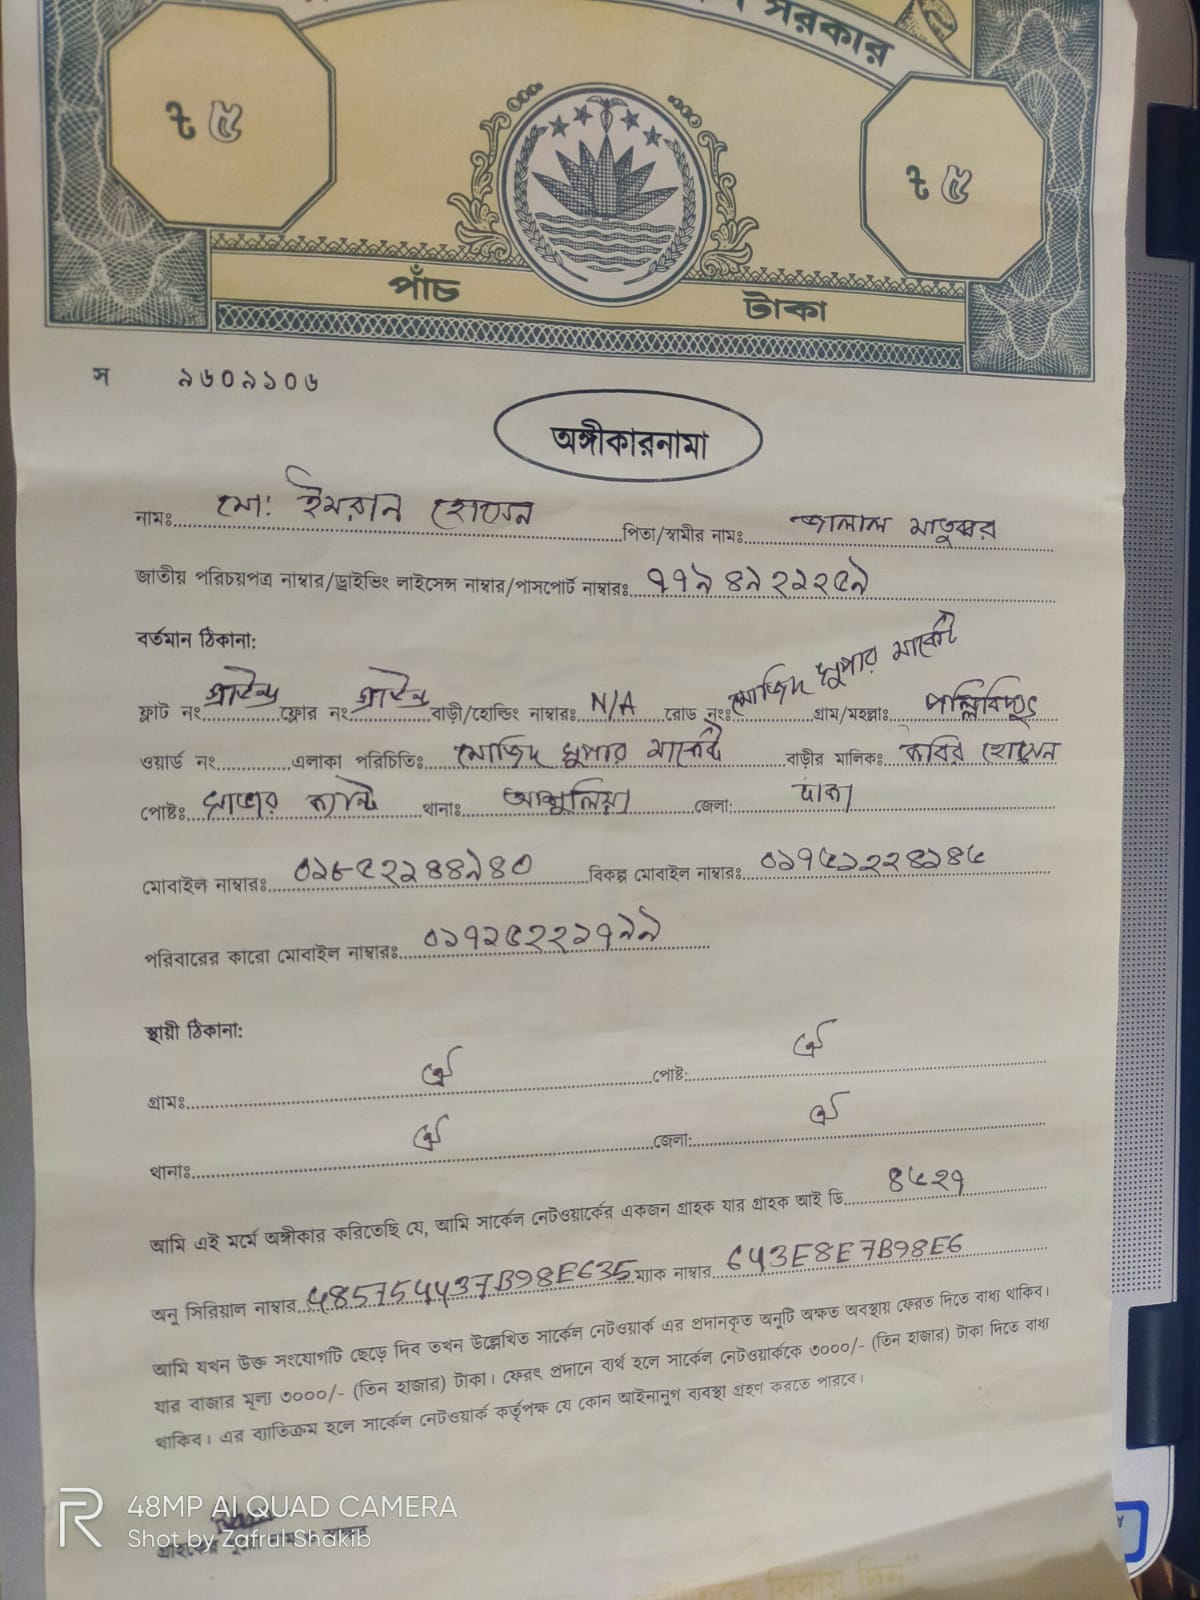 সরকার
৳ ৫
৳ ৫
পাঁচ টাকা
স ৯৬০৯১০৬
অঙ্গীকারনামা
নামঃ মো: ইমরান হোসেন পিতা/স্বামীর নামঃ জালাল মাতুব্বর
জাতীয় পরিচয়পত্র নাম্বার/ড্রাইভিং লাইসেন্স নাম্বার/পাসপোর্ট নাম্বারঃ
বর্তমান ঠিকানা:
ফ্লাট নং ফ্লোর নং বাড়ী/হোল্ডিং নাম্বারঃ N/A রোড নংঃ মোজিদ সুপার মার্কেট গ্রাম/মহল্লাঃ পল্লিবিদ্যুৎ
ওয়ার্ড নং এলাকা পরিচিতিঃ মোজিদ সুপার মার্কেট বাড়ীর মালিকঃ কবির হোসেন
পোষ্টঃ সাভার ক্যান্ট থানাঃ আশুলিয়া জেলা: ঢাকা
মোবাইল নাম্বারঃ বিকল্প মোবাইল নাম্বারঃ
পরিবারের কারো মোবাইল নাম্বারঃ
স্থায়ী ঠিকানা:
গ্রামঃ ঐ পোষ্ট: ঐ
থানাঃ ঐ জেলা: ঐ
আমি এই মর্মে অঙ্গীকার করিতেছি যে, আমি সার্কেল নেটওয়ার্কের একজন গ্রাহক যার গ্রাহক আই ডি ৪৫২৭
অনু সিরিয়াল নাম্বার 485754437B98E635 ম্যাক নাম্বার 643E8E7B98E6
আমি যখন উক্ত সংযোগটি ছেড়ে দিব তখন উল্লেখিত সার্কেল নেটওয়ার্ক এর প্রদানকৃত অনুটি অক্ষত অবস্থায় ফেরত দিতে বাধ্য থাকিব।
যার বাজার মূল্য ৩০০০/- (তিন হাজার) টাকা। ফেরৎ প্রদানে ব্যর্থ হলে সার্কেল নেটওয়ার্ককে ৩০০০/- (তিন হাজার) টাকা দিতে বাধ্য
থাকিব। এর ব্যাতিক্রম হলে সার্কেল নেটওয়ার্ক কর্তৃপক্ষ যে কোন আইনানুগ ব্যবস্থা গ্রহণ করতে পারবে।
48MP AI QUAD CAMERA
Shot by Zafrul Shakib